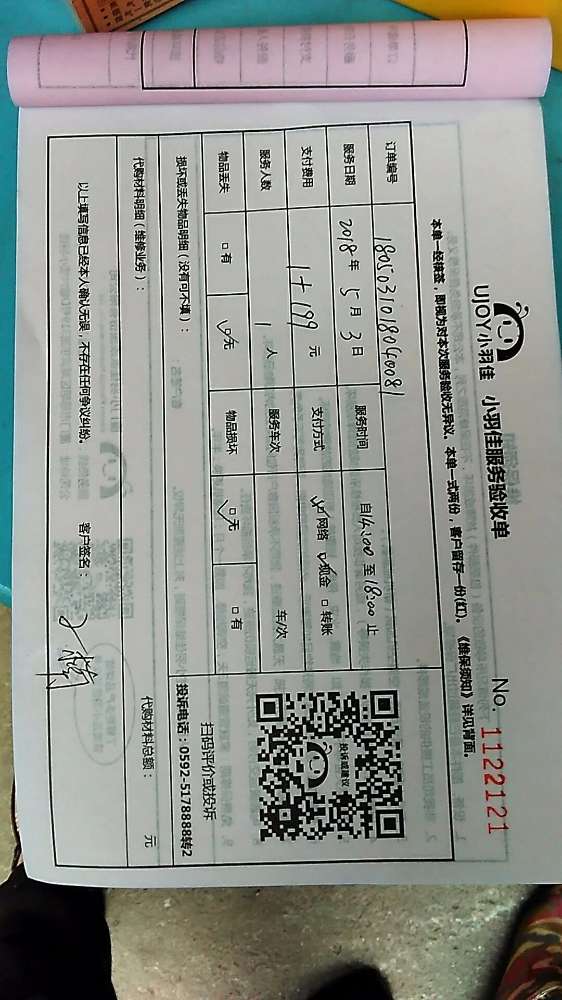 UJOY小羽佳 小羽佳服务验收单
No. 1122121
本单一经接签,即视为对本次服务验收无异议。本单一式两份,客户留存一份(红)。《维保须知》详见背面。
订单编号 1805031018040081
服务日期 2018年5月3日 服务时间 自14:00至18:00止
支付费用 1+199元 支付方式 ☑网络 ☑现金 □转账
服务人数 1人 服务车次 车/次
物品丢失 □有 ☑无 物品损坏 ☑无 □有
投诉或建议
扫码评价或投诉
投诉电话:0592-5178888转2
损坏或丢失物品明细(没有可不填):
代购材料明细(维修业务): 代购材料总额: 元
以上填写信息已经本人确认无误,不存在任何争议纠纷。 客户签名: